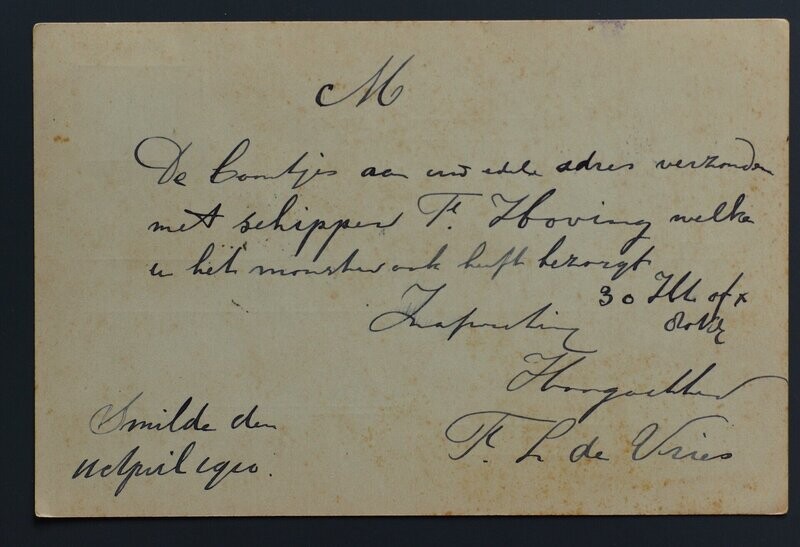 M
De boontjes aan uw edele adres verzonden
met schipper T. Hoving welke
u het monster ook heeft bezorgt
30 Hl of
Hoogachtend
Smilde den
T. L de Vries
April 1910.